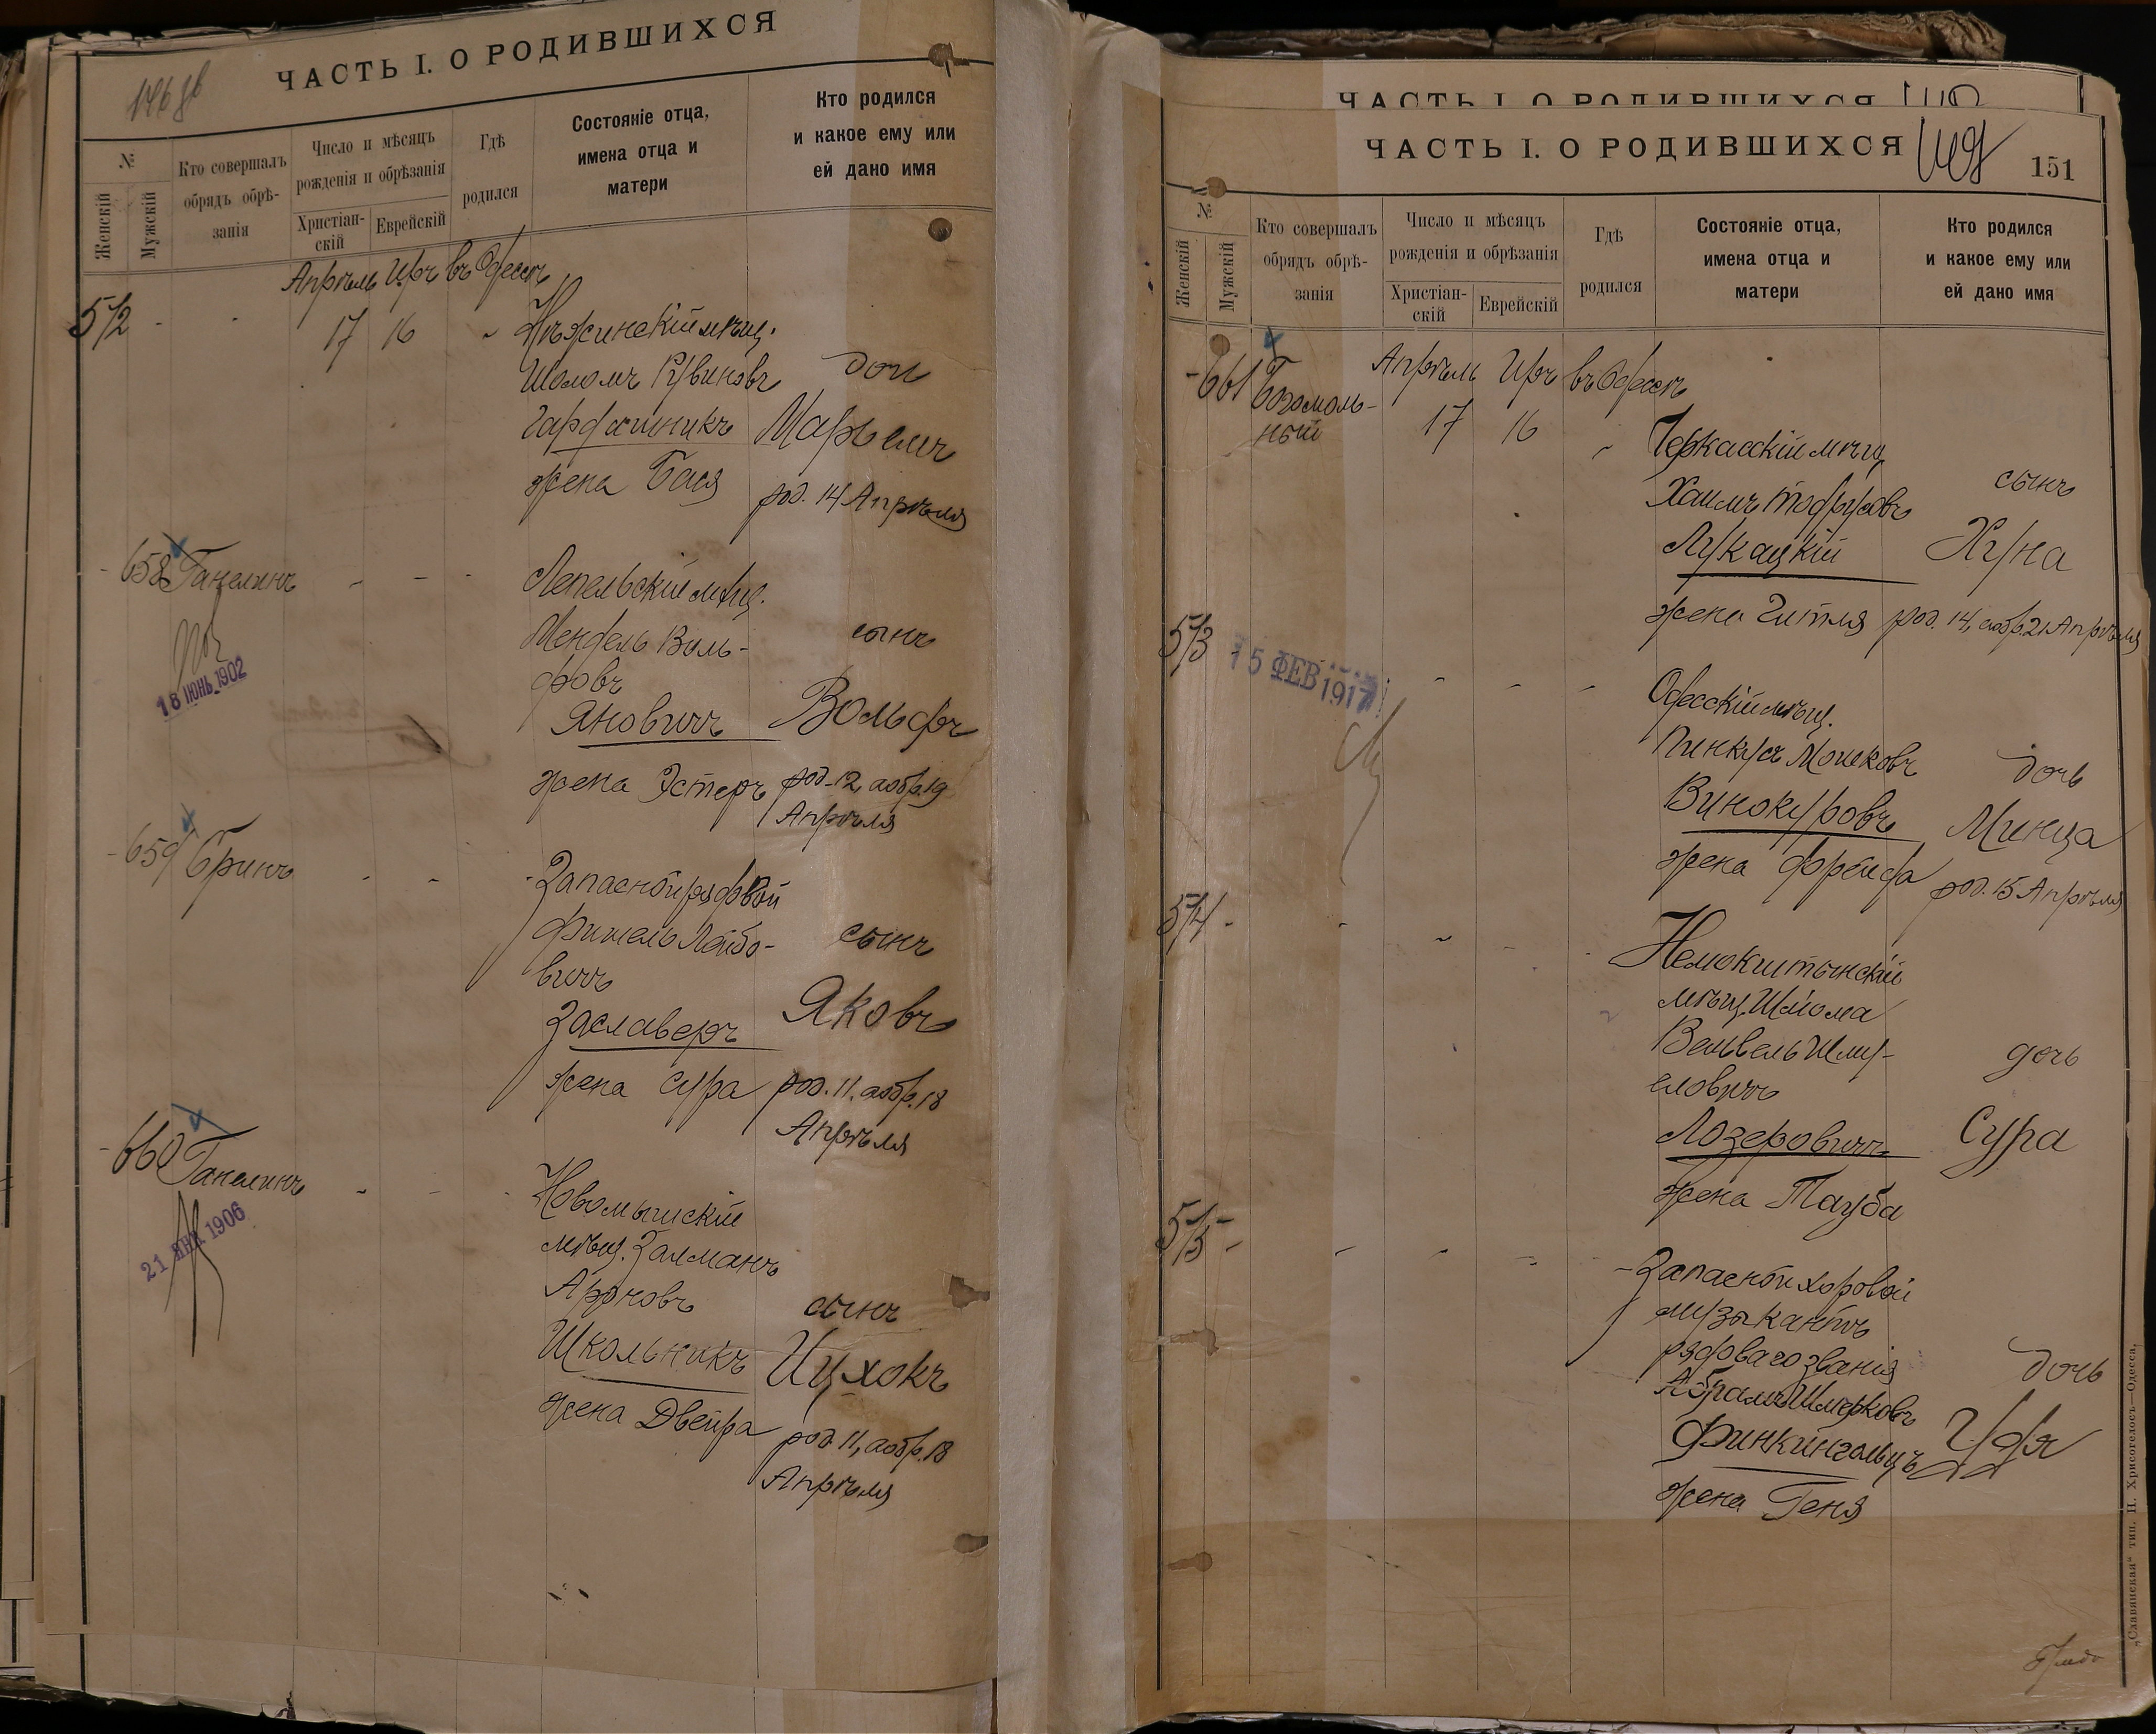 ЧАСТЬ I. О РОДИВШИХСЯ
№
Женскій
Мужскій
Кто совершалъ
обрядъ обрѣ-
занія
Число и мѣсяцъ
рожденія и обрѣзанія
Христіан-
скій
Еврейскій
Гдѣ
родился
Состояніе отца,
имена отца и
матери
Кто родился
и какое ему или
ей дано имя
Апрѣль Иръ въ Одессѣ
572 - - 17 16 " Нѣжинскій мѣщ.
Шоломъ Рувиновъ дочь
жена Бася
род. 14 Апрѣля
658 Ганелинъ - - - Лепельскій мѣщ.
Мендель Воль-
фовъ
сынъ
Яновичъ Вольфъ
жена Эстеръ род. 12, а обр. 19
Апрѣля
18 ІЮНЬ 1902
659 Бринъ - - - Запасной рядовой
Фишель Лейбо-
вичъ
сынъ
Заславеръ Яковъ
жена Сура род. 11, а обр. 18
Апрѣля
660 Ганелинъ - - - Новомышскій
мѣщ. Залманъ
Ароновъ сынъ
Школьникъ Ицхокъ
жена Двейра род. 11, а обр. 18
Апрѣля
21 ЯНВ 1906
ЧАСТЬ I. О РОДИВШИХСЯ
ЧАСТЬ I. О РОДИВШИХСЯ
151
№
Женскій
Мужскій
Кто совершалъ
обрядъ обрѣ-
занія
Число и мѣсяцъ
рожденія и обрѣзанія
Христіан-
скій
Еврейскій
Гдѣ
родился
Состояніе отца,
имена отца и
матери
Кто родился
и какое ему или
ей дано имя
Апрѣль Иръ въ Одессѣ
661 Богомоль-
ный 17 16 " Черкасскій мѣщ.
Хаимъ Тодрусовъ сынъ
Лукацкій Хуна
жена Гитля род. 14, а обр. 21 Апрѣля
573 - - - Одесскій мѣщ.
15 ФЕВ 1917
Пинкусъ Мошковъ дочь
Винокуровъ Минца
жена Фрейда род. 15 Апрѣля
574 - - - - Немокштынскій
мѣщ. Шліома
Вельвель Шму-
еловичъ
дочь
Лозеровичъ Сура
жена Тауба
575 - - - - Запасной хоровой
музыкантъ
рядового званія дочь
Абрамъ Шмерковъ
жена Геня
„Славянская“ тип. Н. Хрисогелосъ—Одесса.